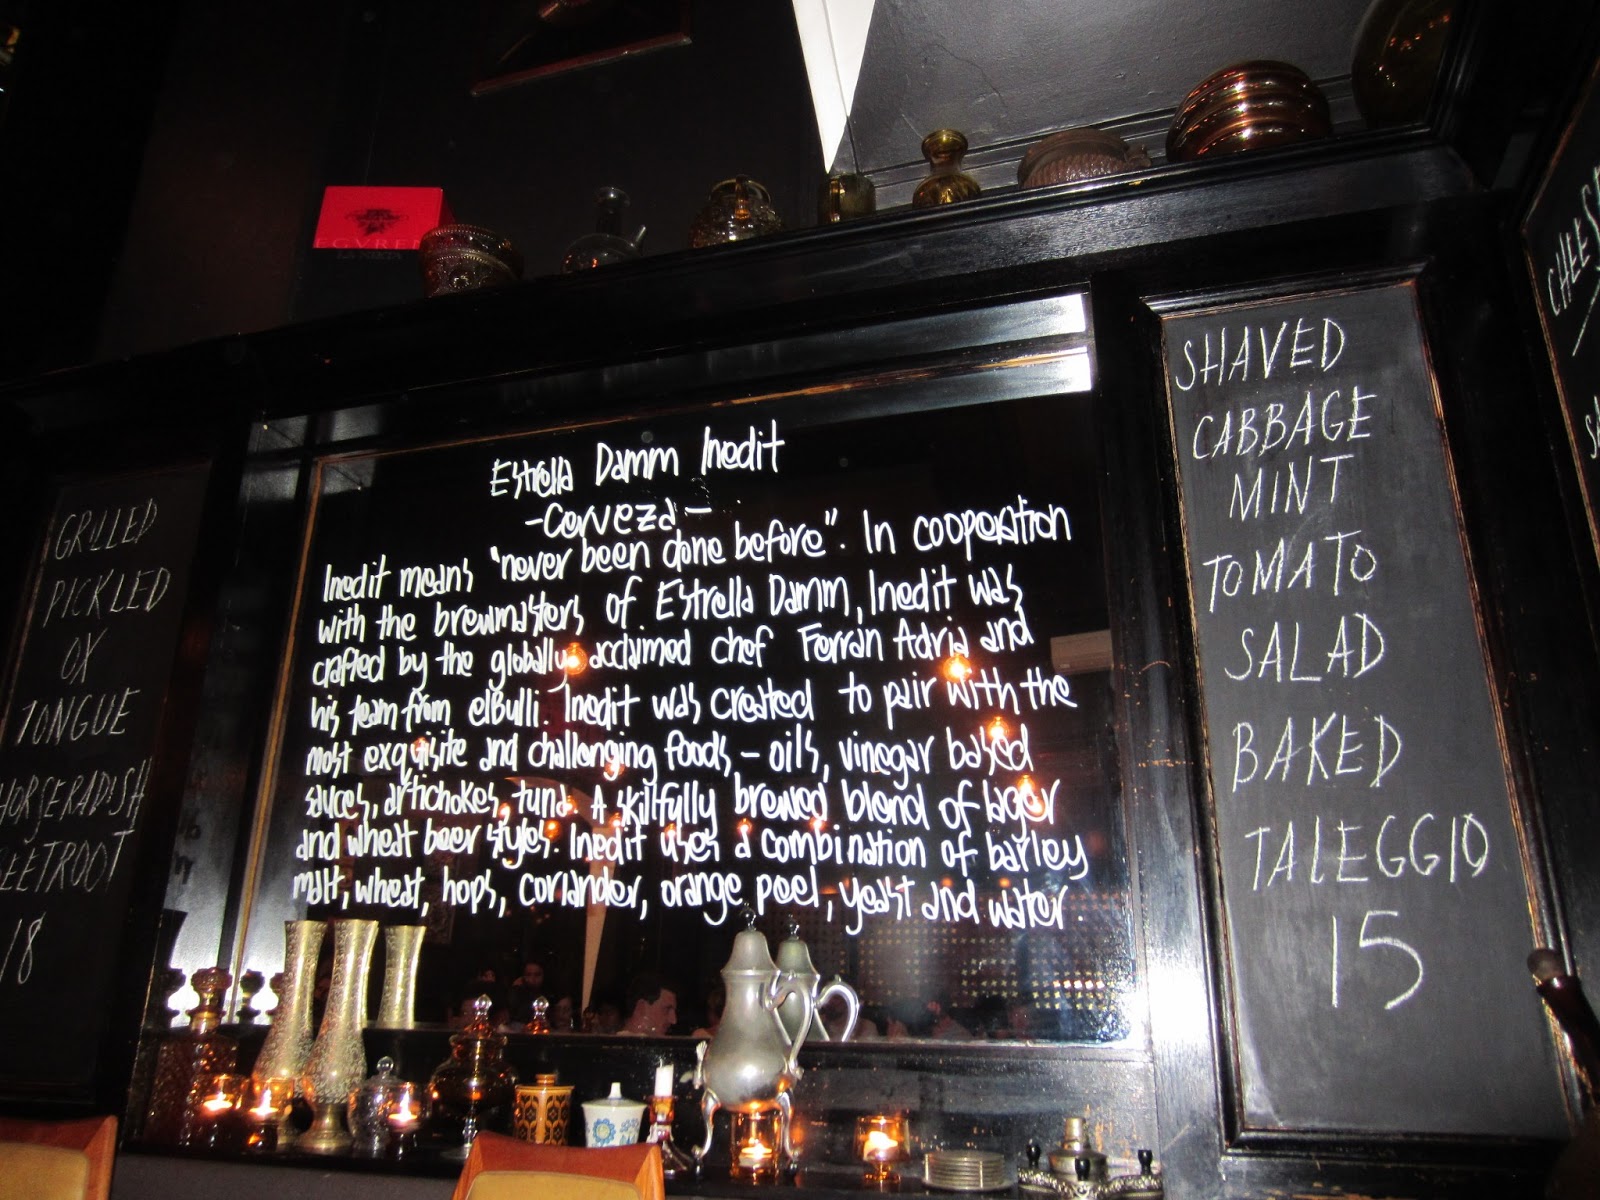 EGUREN
GRILLED
PICKLED
OX
TONGUE
HORSERADISH
BEETROOT
18
Estrella Damm Inedit
-Cerveza-
Inedit means "never been done before". In cooperation
with the brewmasters of Estrella Damm, Inedit was
crafted by the globally acclaimed chef Ferran Adria and
his team from elBulli. Inedit was created to pair with the
most exquisite and challenging foods - oils, vinegar based
sauces, artichokes, tuna. A skillfully brewed blend of lager
and wheat beer styles. Inedit uses a combination of barley
malt, wheat, hops, coriander, orange peel, yeast and water.
SHAVED
CABBAGE
MINT
TOMATO
SALAD
BAKED
TALEGGIO
15